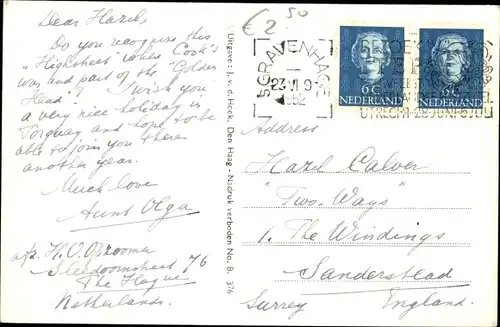 Dear Hazel,
Do you recognise this
"Highsheet" where Cook's
was and part of the "Golden
Head"? I wish you
a very nice holiday in
Torquay and hope to be
able to join you there
another year.
Much love
Aunt Olga
a/p. H.O.
76
The Hague
Netherlands.
Uitgave: J. v. d. Hoek, Den Haag - Nadruk verboden No. B. 376
€ 2.50
'S GRAVENHAGE
23.VI 9-
1952
6C
NEDERLAND
6C
NEDERLAND
UTRECHT
Address
Hazel Calver
"Two-Ways"
1. The Windings
Sanderstead
Surrey England.